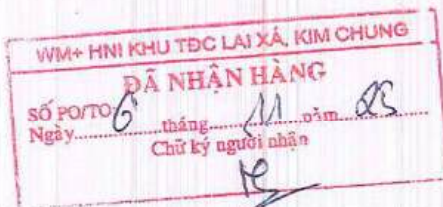 WM+ HNI KHU TĐC LAI XÁ, KIM CHUNG
ĐÃ NHẬN HÀNG
SỐ PO/TO
Ngày 6 tháng 11 năm 25
Chữ ký người nhận